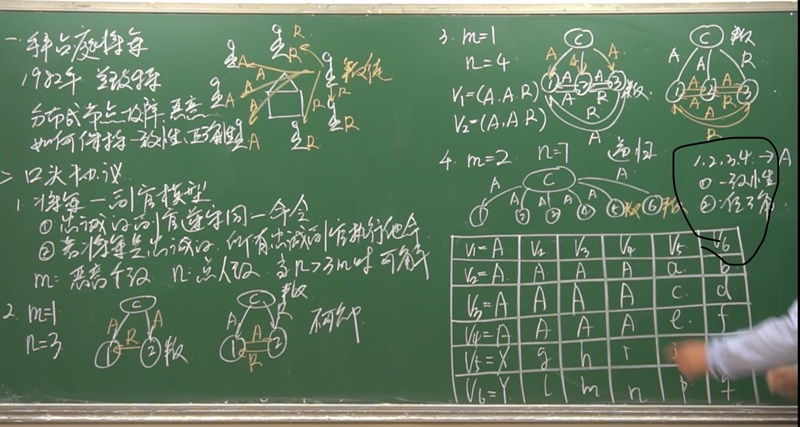 一. 拜占庭将军
1982年 兰波特
分布式节点故障、恶意
如何保持一致性、正确性
A
A
A
A
A
A
R
R
R
R
R
R
叛徒
二. 口头协议
1. 将军—副官模型
① 忠诚的副官遵守同一命令
② 若将军是忠诚的, 所有忠诚副官执行他命令
m: 恶意个数 n: 总人数 当n>3m时 可解
2. m=1
n=3
C
A
A
1
R
2
叛
C
叛
A
R
1
A
R
2
不可解
3. m=1
n=4
V1=(A,A R)
V2=(A,A R)
C
A
A
A
1
A
A
2
A
R
3
叛
R
A
C
叛
A
A
R
1
A
A
2
A
R
3
A
R
4. m=2 n=7 递归
C
A
A
A
A
A
A
1
2
3
4
5
叛
6
叛
1.2.3.4. → A
① 一致性
② 正确
V1=A V2 V3 V4 V5 V6
V2=A A A A a b
V3=A A A A c d
V4=A A A A e f
V5=X g h i j
V6=Y l m n p q